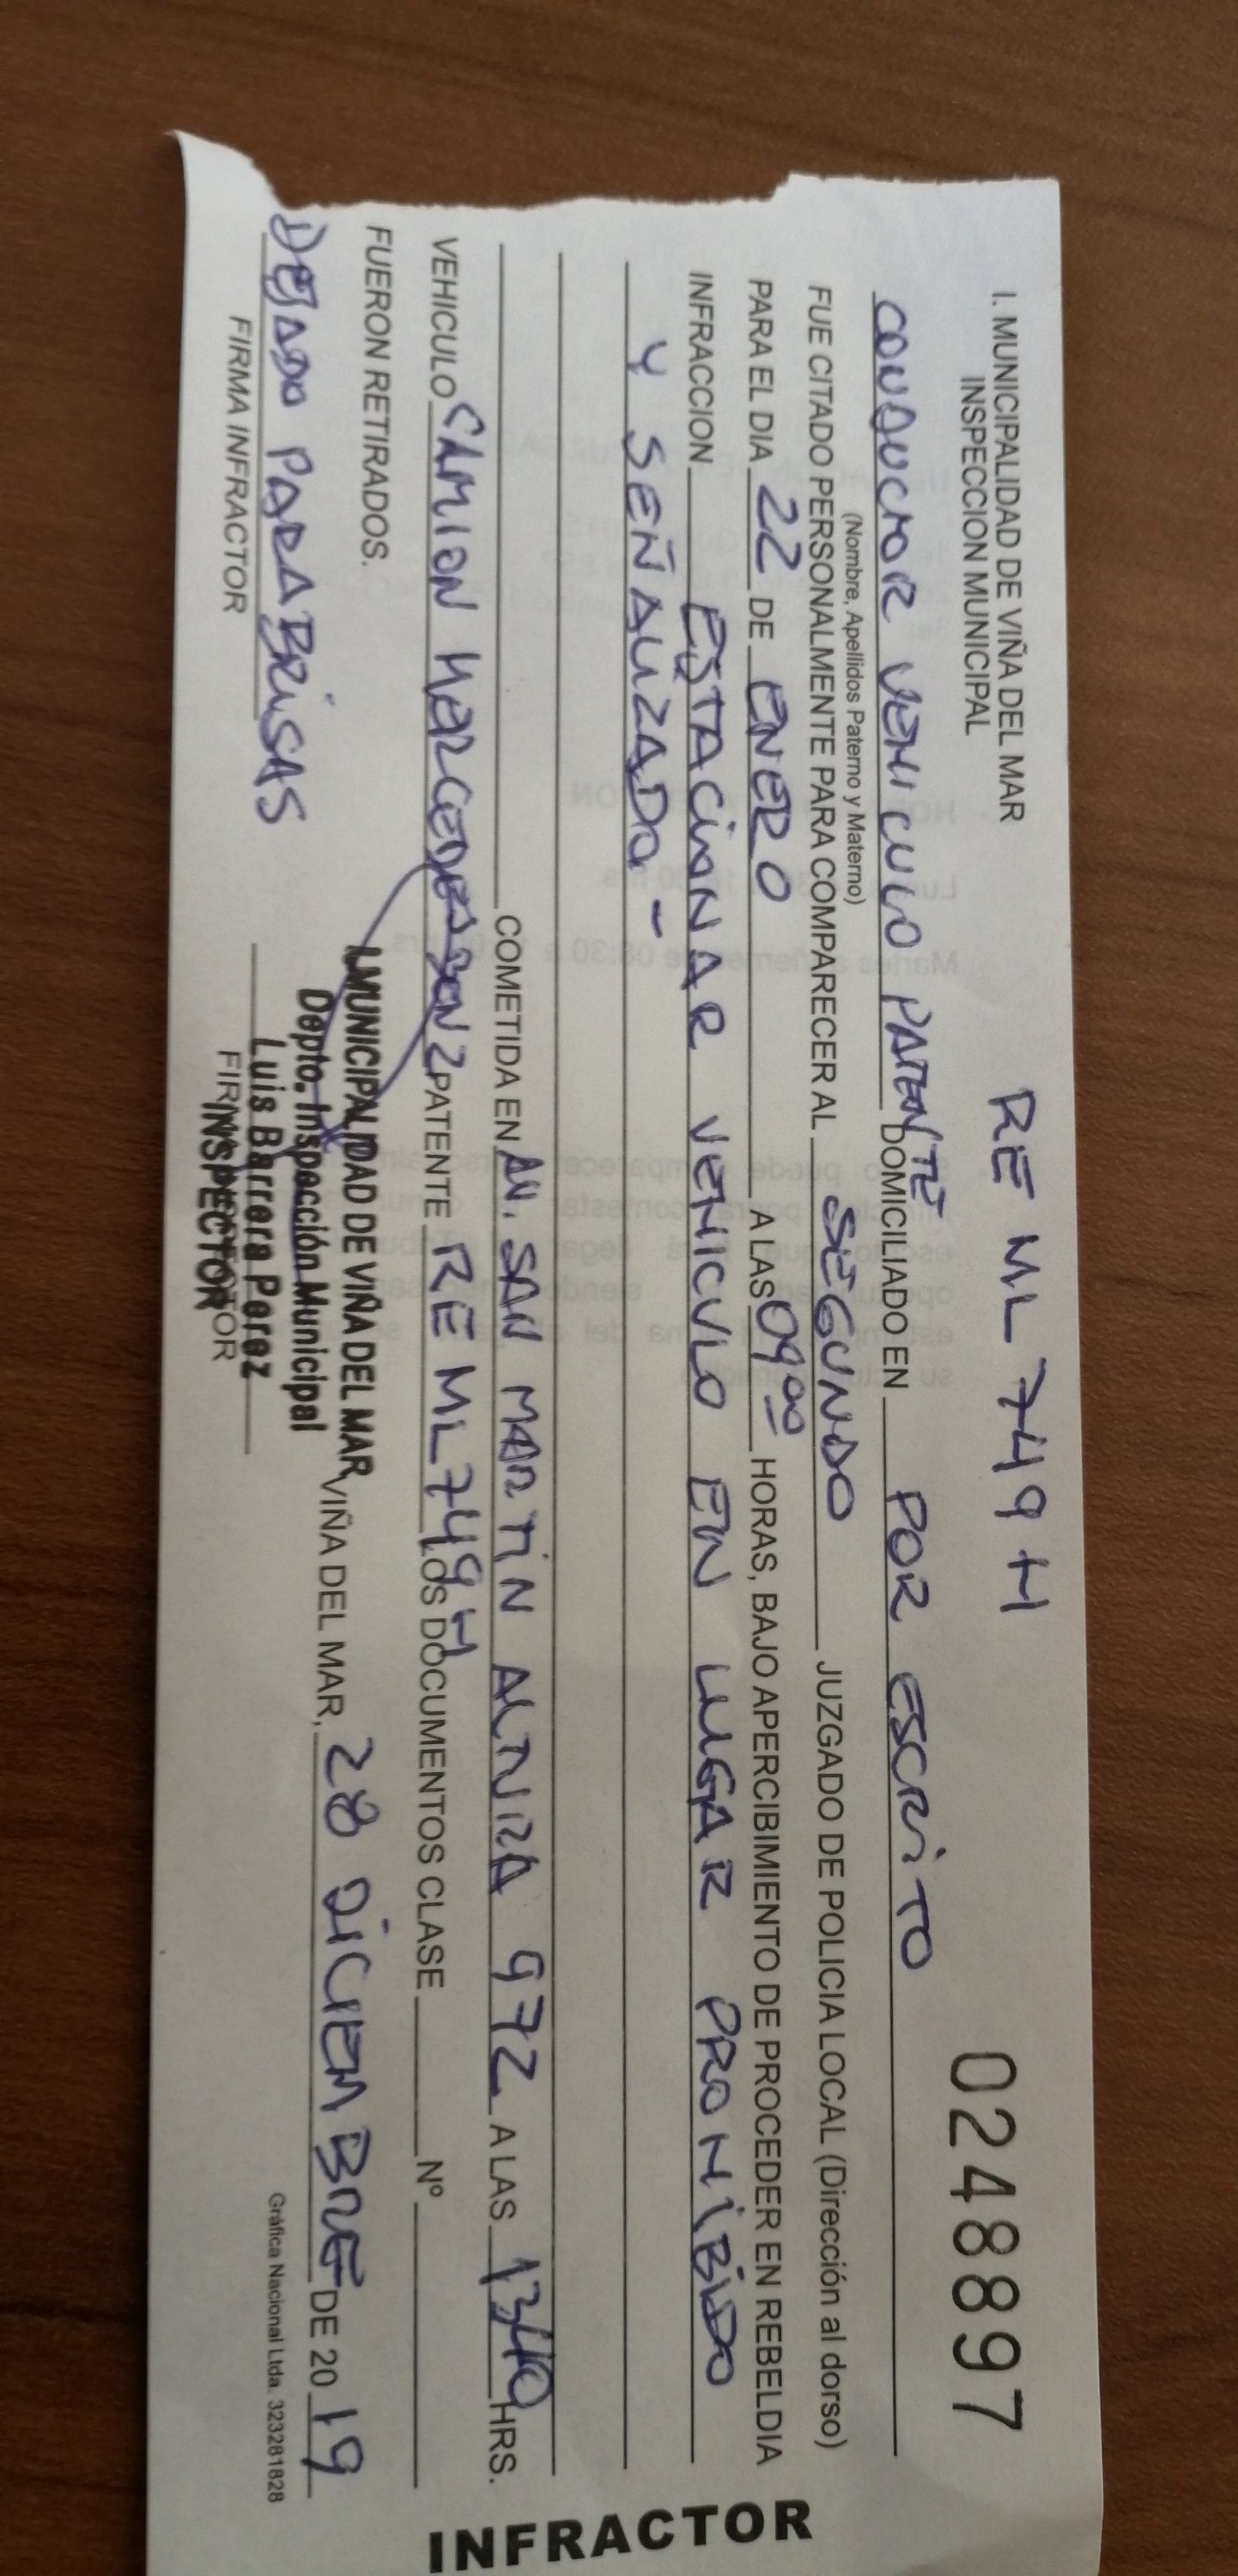 I. MUNICIPALIDAD DE VIÑA DEL MAR
INSPECCION MUNICIPAL
RE ML 749 H
024897
CONDUCTOR VEHICULO PATENTE DOMICILIADO EN POR ESCRITO
(Nombre, Apellidos Paterno y Materno)
FUE CITADO PERSONALMENTE PARA COMPARECER AL SEGUNDO JUZGADO DE POLICIA LOCAL (Dirección al dorso)
PARA EL DIA 22 DE ENERO A LAS 09:00 HORAS, BAJO APERCIBIMIENTO DE PROCEDER EN REBELDIA
INFRACCION ESTACIONAR VEHICULO EN LUGAR PROHIBIDO
Y SEÑALIZADO-
COMETIDA EN AV. SAN MARTIN ALTURA 972 A LAS 1340 HRS.
VEHICULO CAMION MERCEDES BENZ PATENTE RE ML 749 H LOS DOCUMENTOS CLASE Nº
FUERON RETIRADOS.
VIÑA DEL MAR, 28 DICIEMBRE DE 2019
DEJADO PARABRISAS
FIRMA INFRACTOR
I. MUNICIPALIDAD DE VIÑA DEL MAR
Depto. Inspección Municipal
Luis Barrera Perez
INSPECTOR
Gráfica Nacional Ltda. 323281828
INFRACTOR